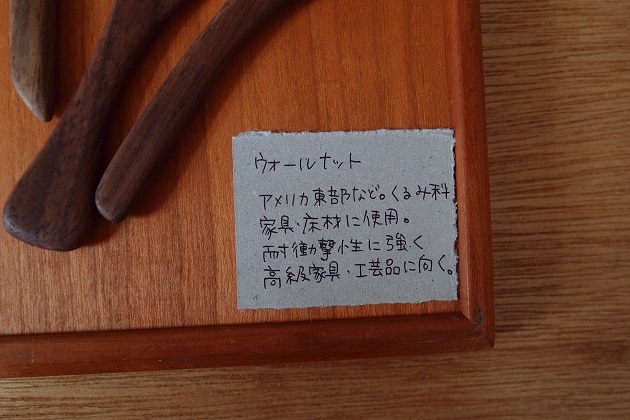 ウォールナット
アメリカ東部など。くるみ科
家具・床材に使用。
耐衝撃性に強く
高級家具・工芸品に向く。